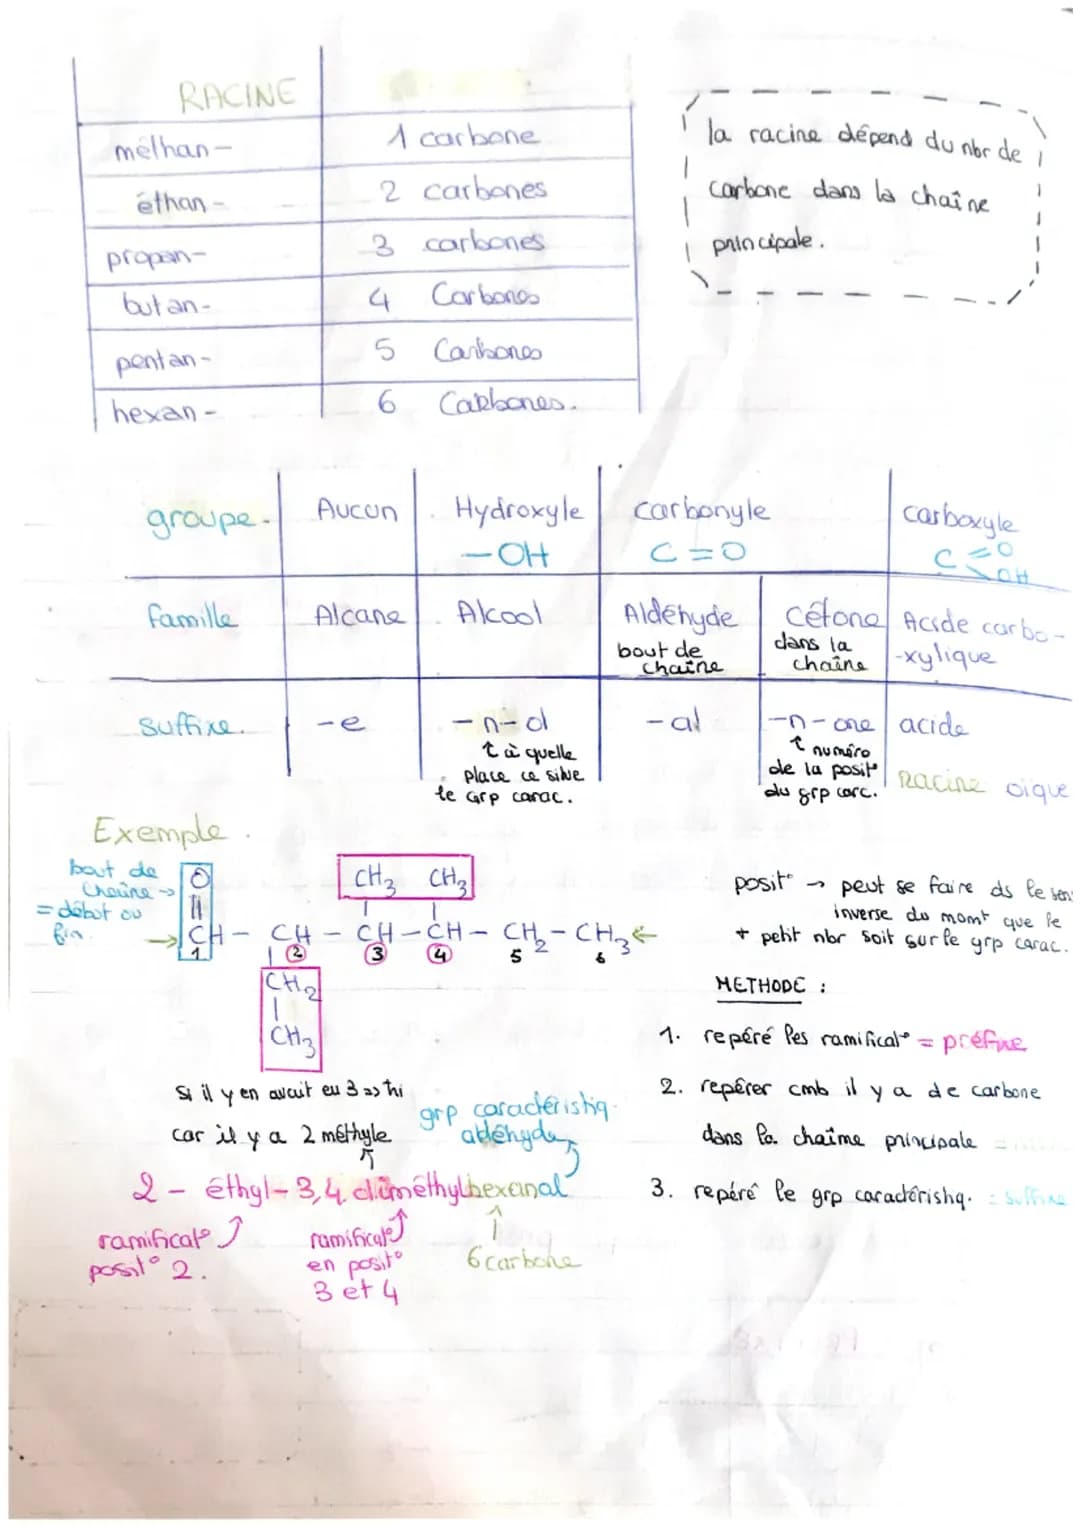 RACINE
méthan- 1 carbone
éthan- 2 carbones
propan- 3 carbones
butan- 4 Carbones
pentan- 5 Carbones
hexan- 6 Carbones.
la racine dépend du nbr de
carbone dans la chaîne
principale.
groupe. Aucun Hydroxyle carbonyle carboxyle
-OH C=O C =O OH
famille Alcane Alcool Aldéhyde cétone Acide carbo-
bout de chaîne dans la chaîne -xylique
suffixe. -e -n-ol -al -n-one acide
↑ à quelle place ce situe le Grp carac.
↑ numéro de la posit° du grp carc.
racine oïque
Exemple.
bout de
chaîne →
= début ou
fin.
O
||
CH - CH - CH - CH - CH2 - CH3 ←
1 2 3 4 5 6
CH3 CH3
CH2
|
CH3
posit° → peut se faire ds le sens
inverse du momt que le
+ petit nbr soit sur le grp carac.
METHODE :
1. repéré les ramificat° = préfixe
2. repérer cmb il y a de carbone
dans la chaîne principale =
3. repéré le grp caractéristiq. = suffixe
Si il y en avait eu 3 => tri
car il y a 2 méthyle
grp caractéristiq.
aldéhyde
2 - éthyl-3,4 diméthylhexanal
ramificat°
posit° 2.
ramificat°
en posit°
3 et 4
6 carbone